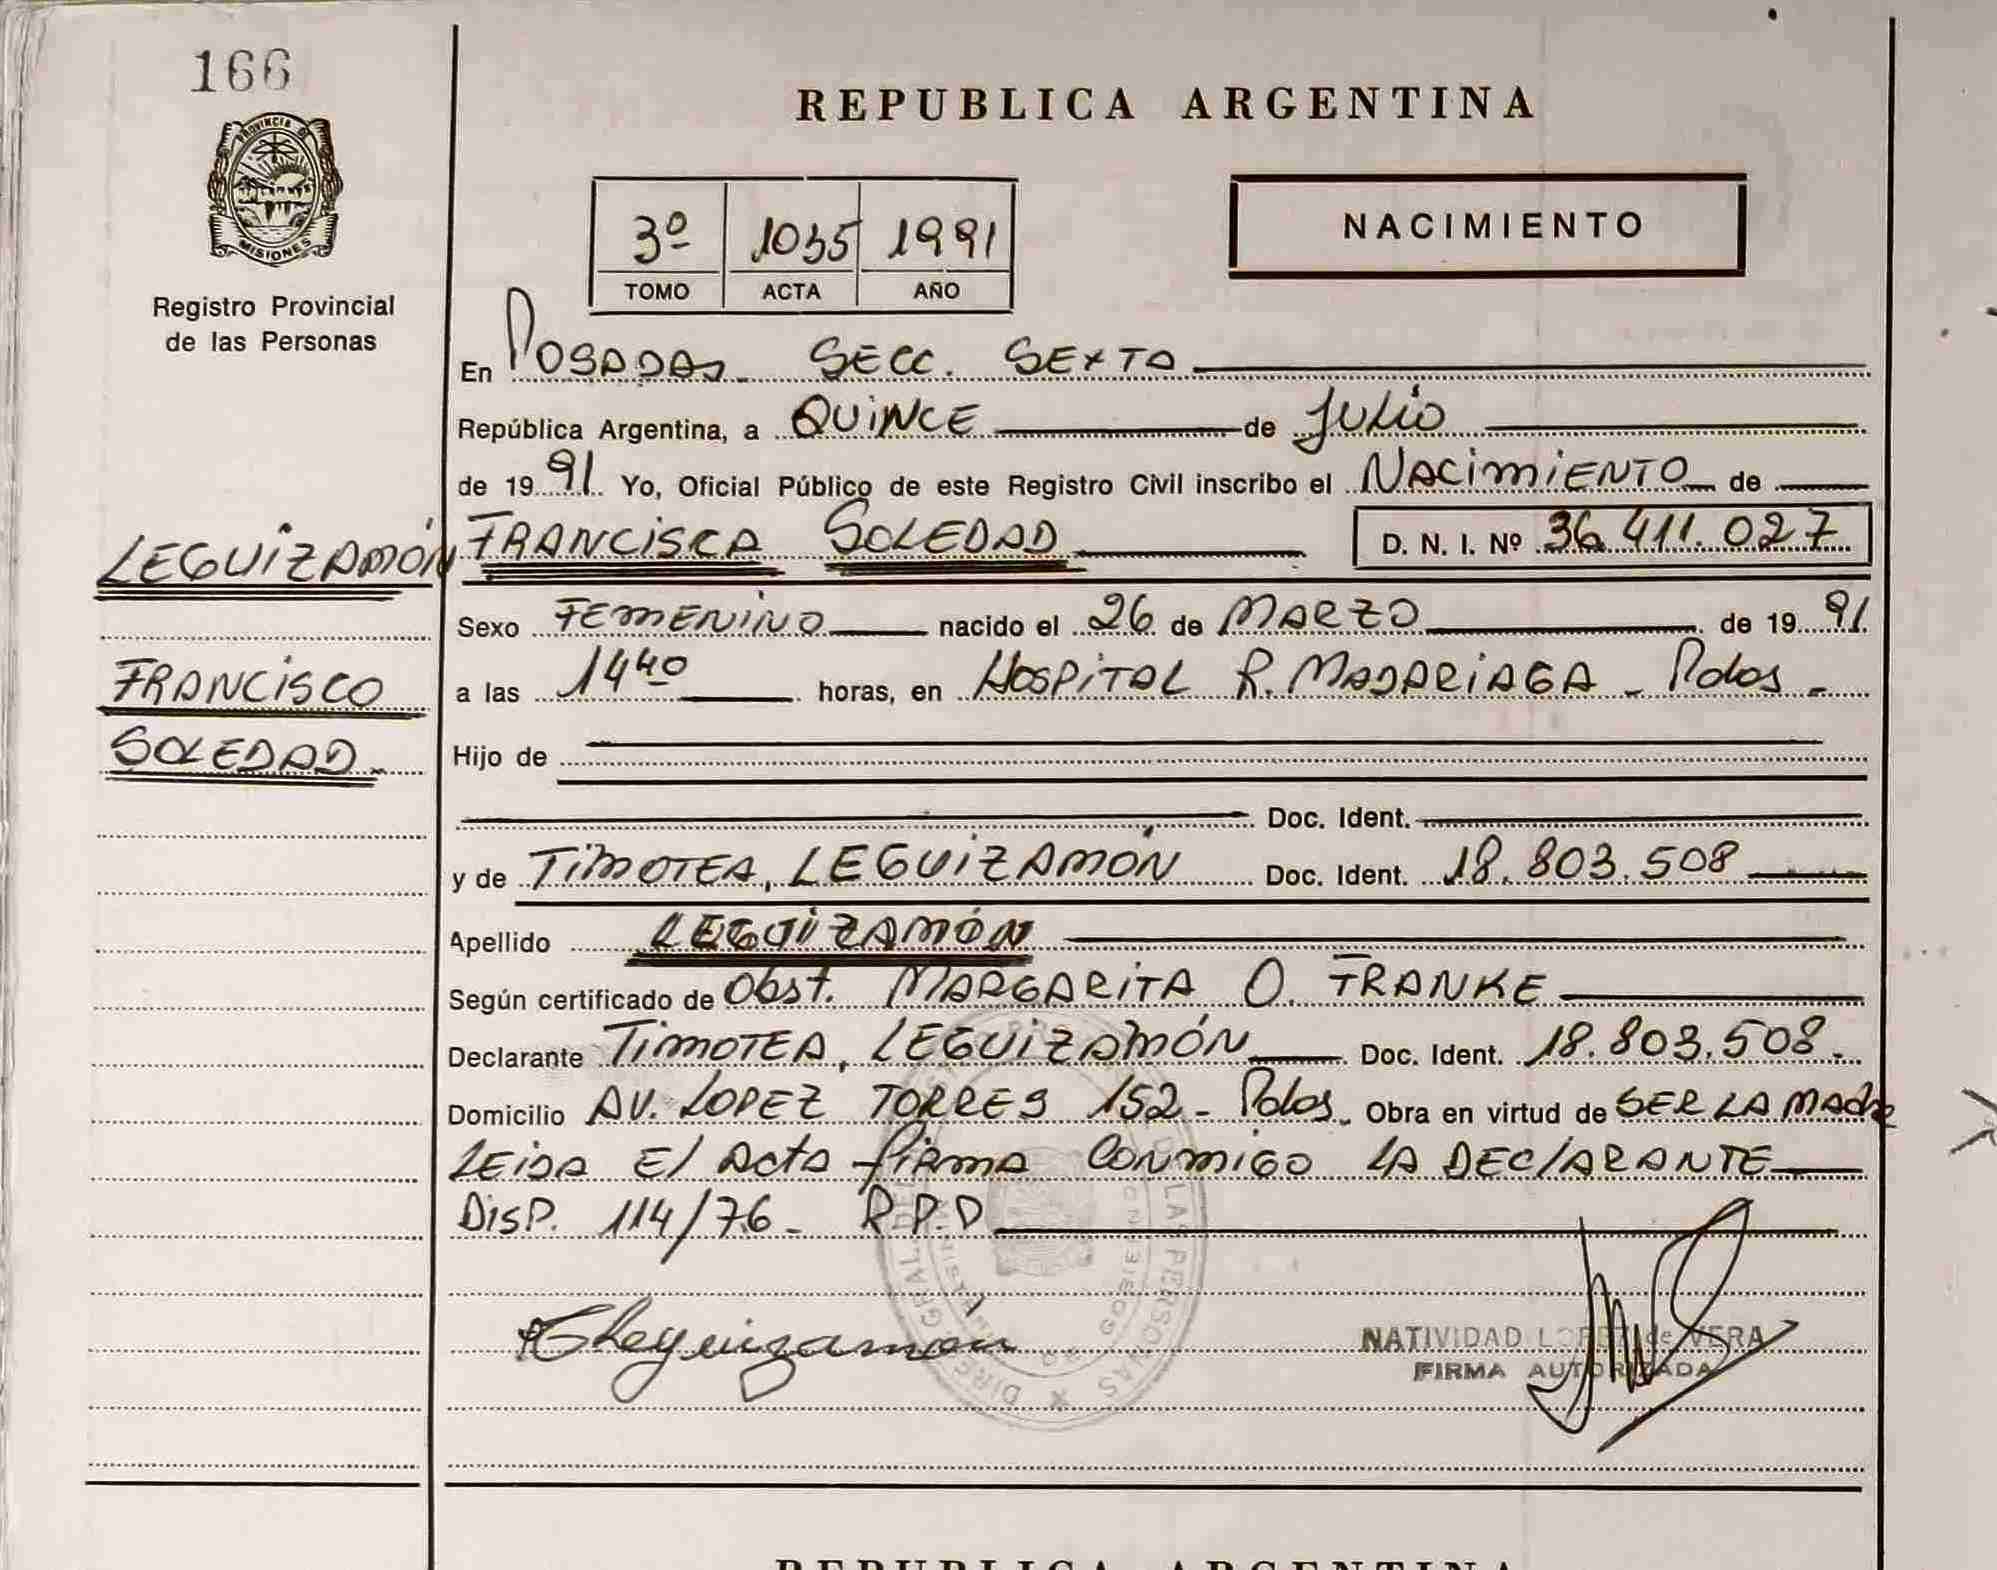 166
PROVINCIA DE
MISIONES
Registro Provincial
de las Personas
REPUBLICA ARGENTINA
3º 1035 1991
TOMO ACTA AÑO
NACIMIENTO
En POSADAS. SECC. SEXTA
República Argentina, a QUINCE de JULIO
de 1991. Yo, Oficial Público de este Registro Civil inscribo el NACIMIENTO de
LEGUIZAMÓN FRANCISCA SOLEDAD D. N. I. Nº 36.411.027
Sexo FEMENINO nacido el 26 de MARZO de 1991.
FRANCISCO
SOLEDAD.
a las 14 40 horas, en HOSPITAL R. MADARIAGA - Pdas -
Hijo de
Doc. Ident.
y de TIMOTEA, LEGUIZAMÓN Doc. Ident. 18.803.508
Apellido LEGUIZAMÓN
Según certificado de Obst. MARGARITA O. FRANKE
Declarante TIMOTEA, LEGUIZAMÓN Doc. Ident. 18.803.508.
Domicilio AV. LOPEZ TORRES 152 - Pdas. Obra en virtud de SER LA MADRE
LEIDA El Acta firma CONMIGO LA DEClARANTE
DisP. 114/76 - R.P.D
Leguizamón
NATIVIDAD LOPEZ de VERA
FIRMA AUTORIZADA
REPUBLICA ARGENTINA